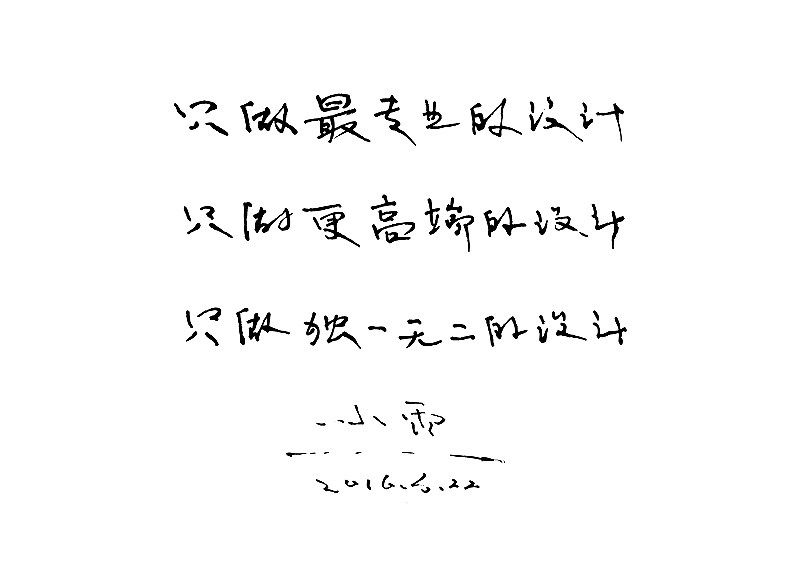 只做最专业的设计
只做更高端的设计
只做独一无二的设计
小雨
2016.6.22